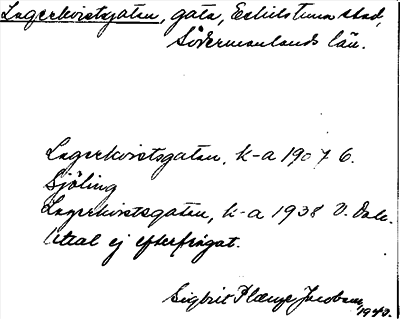 Lagerkvistsgatan, gata, Eskilstuna stad,
Södermanlands län.
Lagerkvistsgatan, k-a 1907 G.
Sjöling
Lagerkvistsgatan, k-a 1938 V. Dale.
Uttal ej efterfrågat.
Sigbrit Plænge Jacobson, 1940.